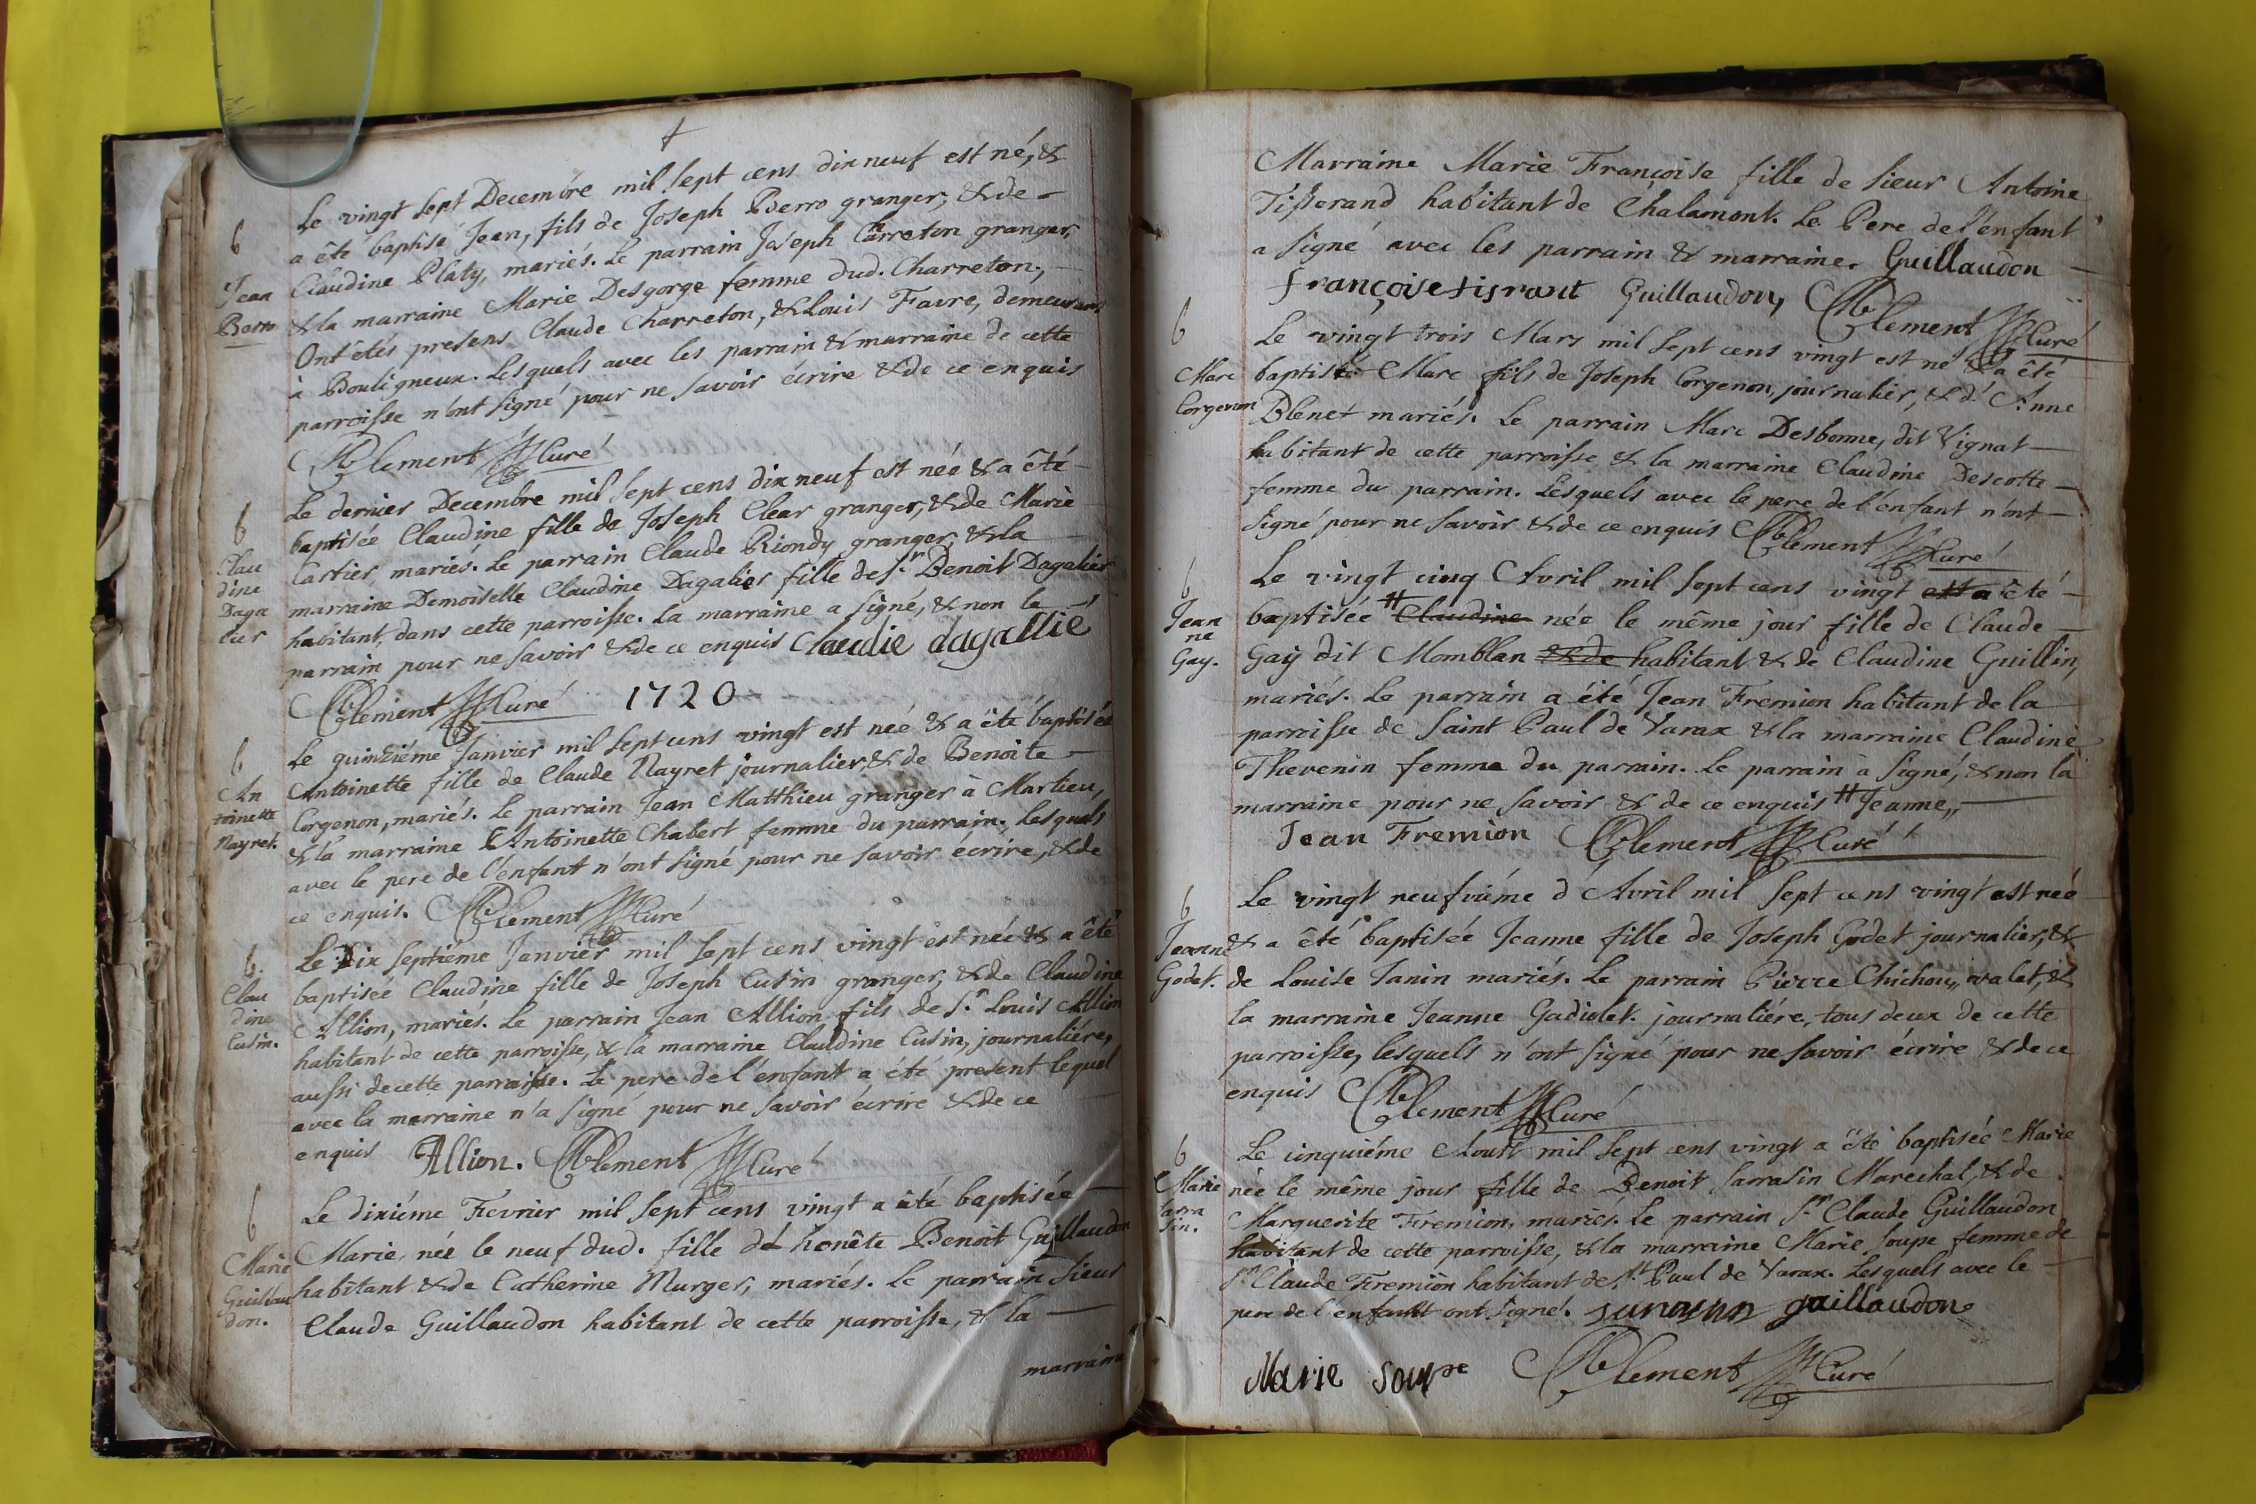 Le vingt sept Decembre mil sept cens dix neuf est né, &
a êté baptisé Jean, fils de Joseph Berro granger, & de
Claudine Platy, mariés. Le parrain Joseph Carreton granger,
& la marraine Marie Desgorge femme dud. Charreton,
Ont étés presens Claude Charreton, & Louis Favre, demeurans
à Bouligneux. Lesquels avec les parrain & marraine de cette
parroisse n'ont signé pour ne savoir écrire & de ce enquis
Clement Curé
b
Jean
Berro
Le dernier Decembre mil sept cens dix neuf est née & a êté
baptisée Claudine fille de Joseph Clear granger, & de Marie
Cartier, mariés. Le parrain Claude Riondy granger, & la
marraine Demoiselle Claudine Dagalier fille de Sr. Benoit Dagalier
habitant, dans cette parroisse. La marraine a signé, & non le
parrain pour ne savoir & de ce enquis Claudie dagallie
Clement Curé 1720
b
Clau
dine
Daga
lier
Le quinziéme Janvier mil sept cens vingt est née & a êté baptisée
Antoinette fille de Claude Nayret journalier, & de Benoite
Corgenon, mariés. Le parrain Jean Matthieu granger à Marlieu,
& la marraine Antoinette Chabert femme du parrain, Lesquels
avec le pere de l'enfant n'ont signé pour ne savoir écrire, & de
ce enquis. Clement Curé
b
An
toinette
Nayret.
Le Dix septiéme Janvier mil sept cens vingt est née & a êté
baptisée Claudine fille de Joseph Cusin granger, & de Claudine
Allion, mariés. Le parrain Jean Allion fils de Sr. Louis Allion
habitant de cette parroisse, & la marraine Claudine Cusin, journaliére,
aussi de cette parroisse. Le pere de l'enfant a été present lequel
avec la marraine n'a signé pour ne savoir écrire & de ce
enquis Allion. Clement Curé
b.
Clau
dine
Cusin.
Le dixiéme Fevrier mil sept cens vingt a été baptisée
Marie née le neuf dud. fille de honête Benoit Guillaudon
habitant & de Catherine Murger, mariés. Le parrain Sieur
Claude Guillaudon habitant de cette parroisse, & la
marraine
b
Marie
Guillau
don.
Marraine Marie Françoise fille de Sieur Antoine
Tisserand habitant de Chalamont. Le Pere de l'enfant
a signé avec les parrain & marraine. Guillaudon
françoise tisrant Guillaudon, Clement Curé
Le vingt trois Mars mil sept cens vingt est né & a êté
baptisé Marc fils de Joseph Corgenon, journalier, & d'Anne
Blenet mariés. Le parrain Marc Desbonne, dit Vignat
habitant de cette parroisse & la marraine Claudine Descotte
femme du parrain. Lesquels avec le pere de l'enfant n'ont
signé pour ne savoir & de ce enquis Clement Curé
b
Marc
Corgenon
Le vingt cinq Avril mil sept cens vingt est a êté
baptisée # Claudine née le même jour fille de Claude
Gaÿ dit Momblan & de habitant & de Claudine Guillin,
mariés. Le parrain a été Jean Fremion habitant de la
parroisse de Saint Paul de Varax & la marraine Claudine
Thevenin femme du parrain. Le parrain à signé, & non la
marraine pour ne savoir & de ce enquis # Jeanne,,
Jean Fremion Clement Curé
b
Jean
ne
Gay.
Le vingt neufviéme d'Avril mil sept cens vingt est née
& a êté baptisée Jeanne fille de Joseph Godet journalier, &
de Louise Janin mariés. Le parrain Pierre Chichou, valet, &
la marraine Jeanne Gadiolet journaliére, tous deux de cette
parroisse, lesquels n'ont signé pour ne savoir écrire & de ce
enquis Clement Curé
b
Jeanne
Godet.
Le cinquiéme Aoust mil sept cens vingt a êté baptisée Marie
née le même jour fille de Benoit Sarrasin Marechal, & de
Marguerite Fremion, mariés. Le parrain Sr. Claude Guillaudon
habitant de cette parroisse, & la marraine Marie Soupe femme de
Sr. Claude Fremion habitant de St. Paul de Varax. Lesquels avec le
pere de l'enfant ont signé. guillaudon
Marie Soupe Clement Curé
b
Marie
Sarra
sin.